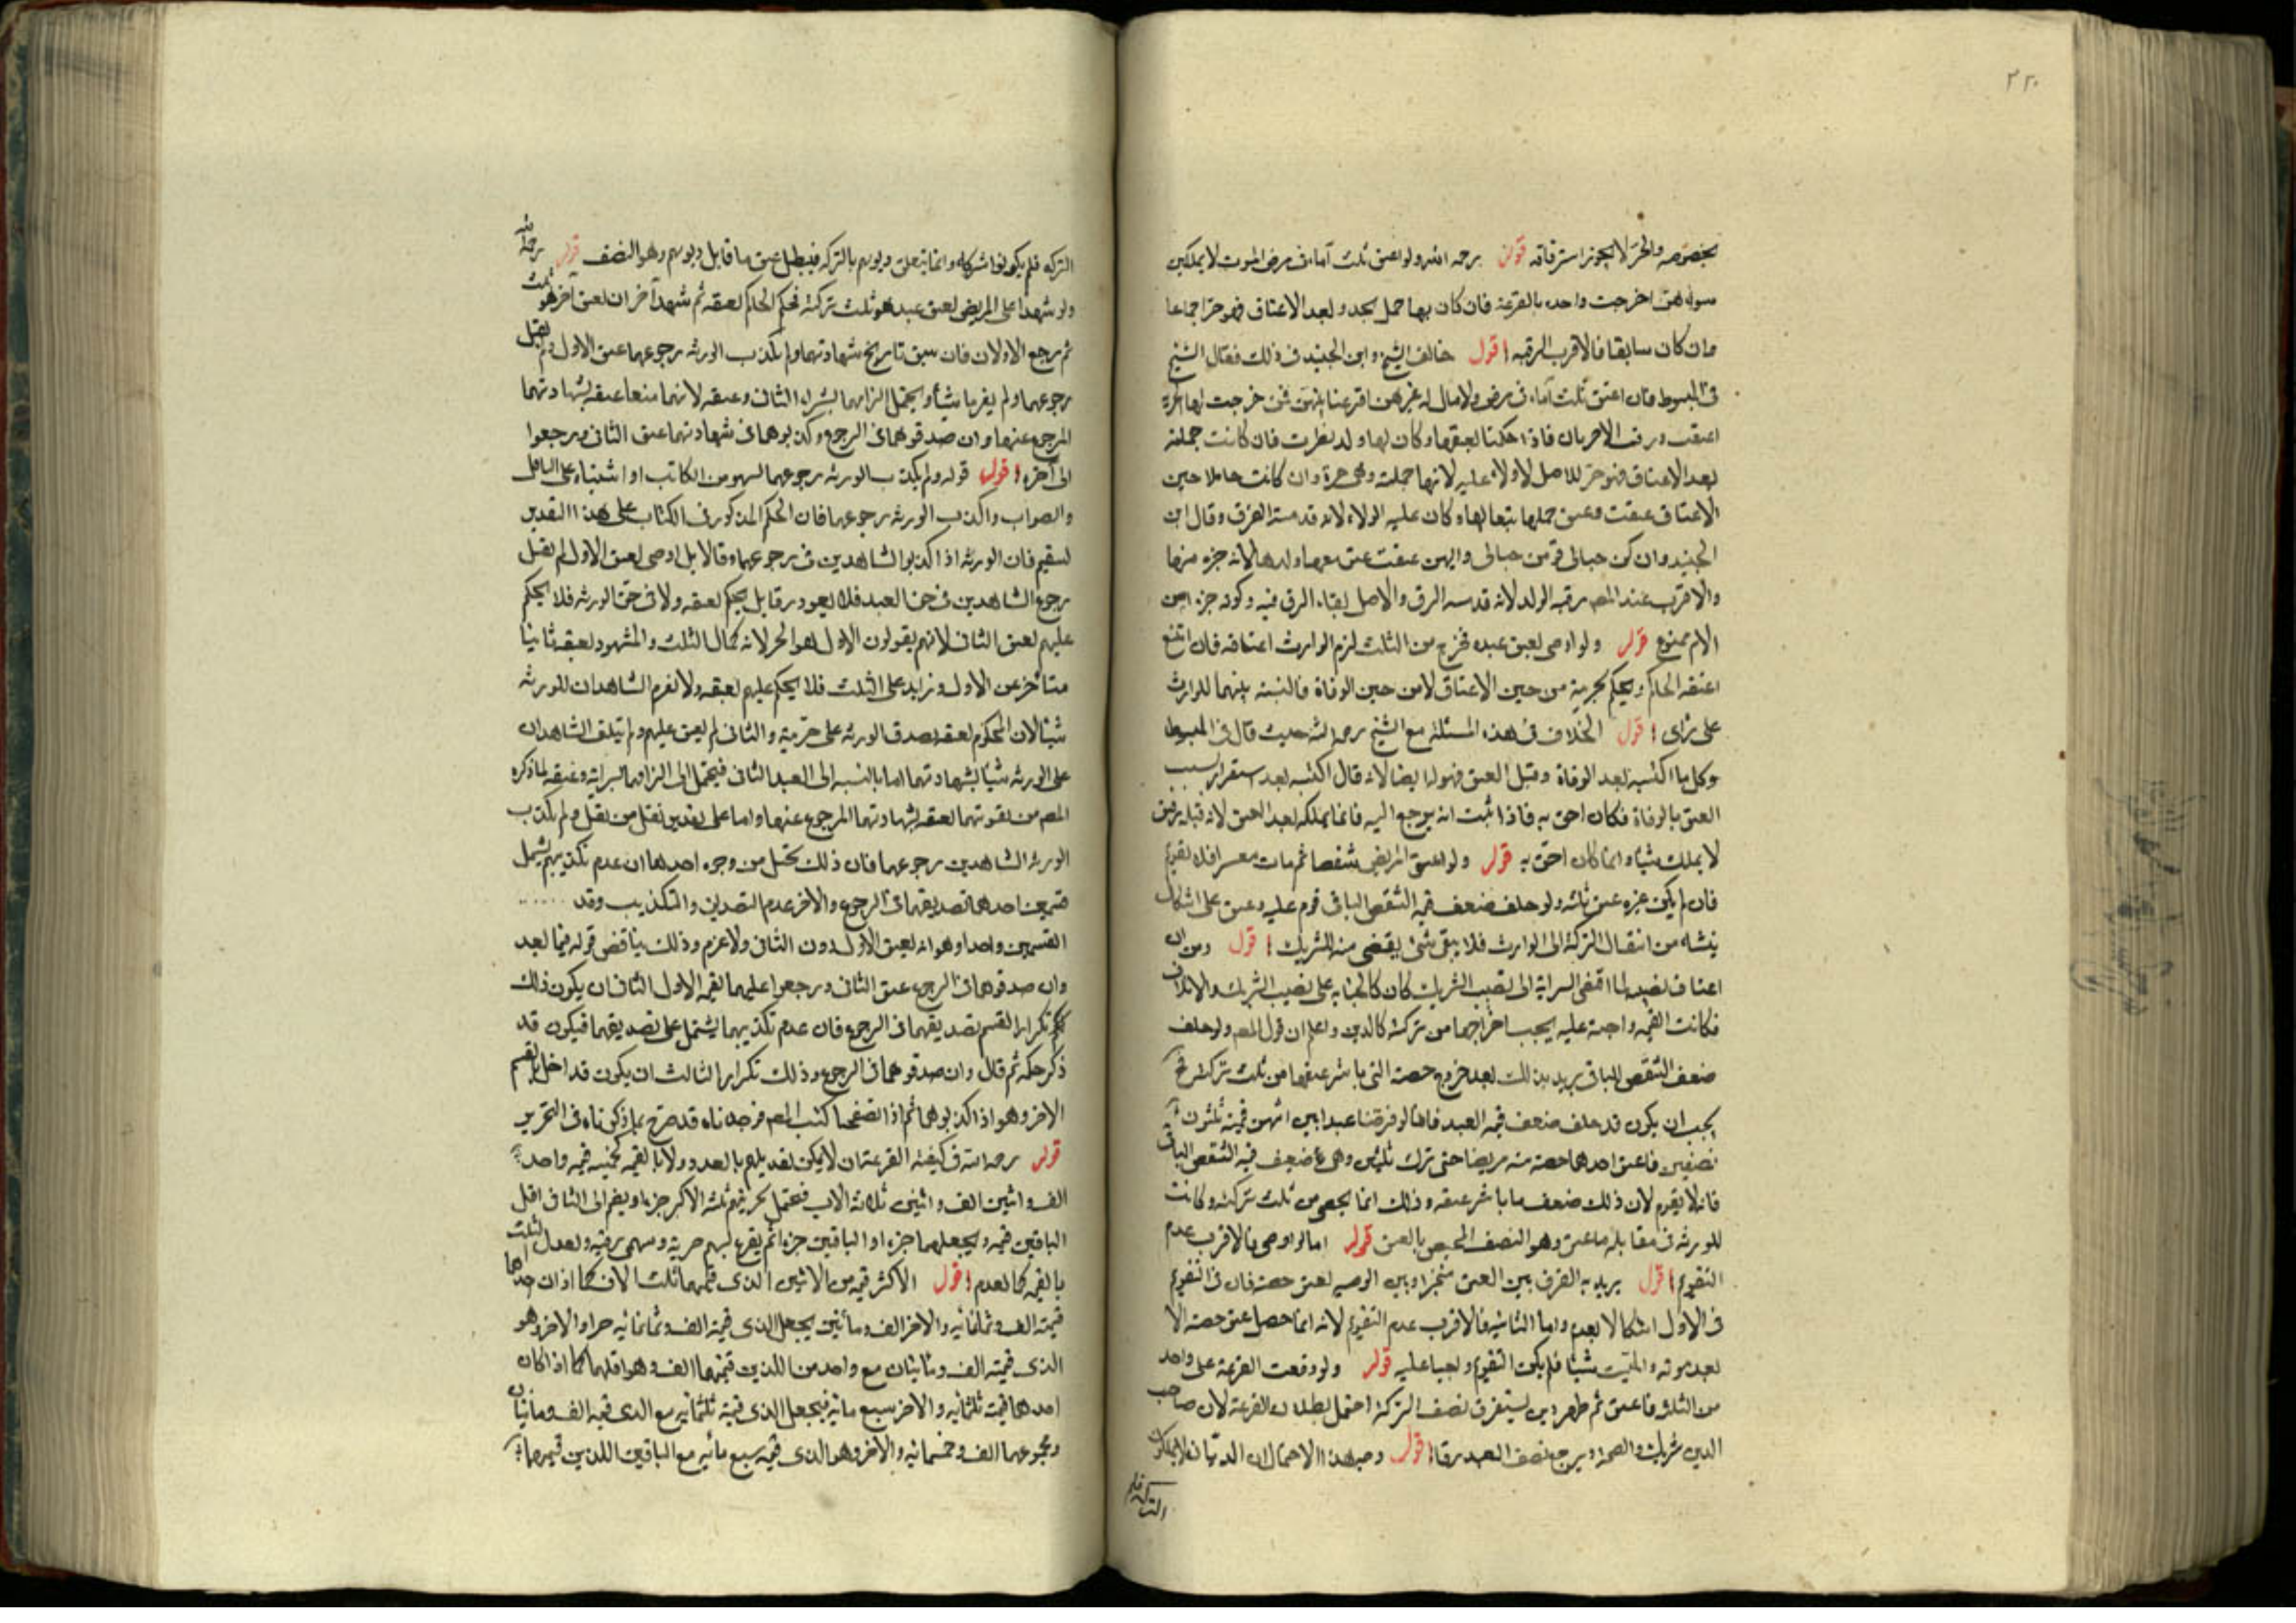 ٢٢٠
بخصوصه والحر لا يجوز استرقاقه قوله رحمه الله ولو اعتق ثلث آماء في مرض الموت لا يملك
سواهن اخرجت واحده بالقرعة فان كان بها حمل تجدد بعد الاعتاق فهو حر اجماعا
وان كان سابقا فالاقرب الرقيه اقول خالف الشيخ وابن الجنيد في ذلك فقال الشيخ
في المبسوط فان اعتق ثلث آماء في مرض ولا مال له غيرهن اقرعنا بينهن فمن خرجت لها الحرية
اعتقت ورقت الاخريان فاذا حكمنا بعتقها وكان لها ولد نظرت فان كانت حملته
بعد الاعتاق فهو حر للاصل لا ولاء عليه لانها حملته وهي حرة وان كانت حاملا حين
الاعتاق عتقت وعتق حملها تبعا لها وكان عليه الولاء لانه قد مسه الرق وقال ابن
الجنيد وان كن حبالى فمن عتقت عتق معها ولدها لانه جزء منها
والاقرب عند المصـ رقية الولد لانه قد مسه الرق والاصل بقاء الرق فيه وكونه جزء من
الام ممنوع قوله ولو اوصى بعتق عبده فخرج من الثلث لزم الوارث اعتاقه فان امتنع
اعتقه الحاكم ويحكم بحريته من حين الاعتاق لا من حين الوفاة فالكسب بينهما للوارث
على رأي اقول الخلاف في هذه المسئلة مع الشيخ رحمه الله حيث قال في المبسوط
وكل ما اكتسبه بعد الوفاة وقبل العتق فهو له ايضا لانه قال اكتسبه بعد استقرار سبب
العتق بالوفاة فكان احق به فاذا ثبت انه يرجع اليه فانما يملكه بعد العتق لانه قبله رقيق
لا يملك شيئا وانما كان احق به قوله ولو اعتق المريض شقصا ثم مات معسرا فلا تقويم
فان لم يكن غيره عتق ثلثه ولو خلف ضعف قيمة الشقص الباقي قوم عليه وعتق على اشكال
ينشاء من انتقال التركة الى الوارث فلا يبقى شيء يقضى منه للشريك اقول ومن ان
اعتاق نصيبه لما اقتضى السراية الى نصيب الشريك كان كالجناية على نصيب الشريك والاتلاف
فكانت القيمة واجبة عليه يجب اخراجها من تركته كالدين واعلم ان قول المصـ ولو خلف
ضعف الشقص الباقي يريد بذلك بعد خروج حصته التي باشر عتقها من ثلث تركته
يجب ان يكون قد خلف ضعف قيمة العبد فانا لو فرضنا عبدا بين اثنين قيمته ثلثون
نصفين فاعتق احدهما حصته منه مريضا حتى ترك ثلثين وهي ضعف قيمة الشقص الباقي
فانه لا يقوم لان ذلك ضعف ما باشر عتقه وذلك انما يحصى من ثلث تركته وكانت
للورثة في مقابلة ما عتق وهو النصف المختص بالعتق قوله اما لو اوصى فالاقرب عدم
التقويم اقول يريد به الفرق بين العتق منجزا وبين الوصيه بعتق حصته فان في التقويم
في الاول اشكالا بعدم واما الثانية فالاقرب عدم التقويم لانه انما حصل عتق حصته الا
بعد موته والميت شيئا فلم يكن التقويم واجبا عليه قوله ولو وقعت القرعة على واحد
من الثلث فاعتق ثم ظهر دين يستغرق نصف التركة احتمل بطلان القرعة لان صاحب
الدين شريك والصحة ويرجع نصف العبد رقا اقول وجه هذا الاحتمال ان الديان لا يملكون
التركه فلم
التركه فلم يكونوا شركاء وانما يتعلق ديونهم بالتركه فيبطل عتق ما قابل ديونهم وهو النصف قوله رحمه الله
ولو شهدا على المريض بعتق عبد هو ثلث تركته فحكم الحاكم بعتقه ثم شهد آخران بعتق آخر هو ثلث
ثم رجع الاولان فان سبق تاريخ شهادتهما ولم يكذب الورثة رجوعهما عتق الاول ولم يقبل
رجوعهما ولم يغرما شيئا ويحتمل الزامهما بشراء الثاني وعتقه لانهما منعا عتقه بشهادتهما
المرجوع عنها وان صدقوهما في الرجوع وكذبوهما في شهادتهما عتق الثاني ورجعوا
الى آخره اقول قوله ولم يكذب الورثة رجوعهما لسهو من الكاتب او اشتباه على الناقل
والصواب واكذب الورثة رجوعهما فان الحكم المذكور في الكتاب على هذا التقدير
يستقيم فان الورثة اذا اكذبوا الشاهدين في رجوعهما وقالا بل اوصى بعتق الاول لم يقبل
رجوع الشاهدين في حق العبد فلا يعود رقا بل يحكم بعتقه ولا في حق الورثة فلا يحكم
عليهم بعتق الثاني لانهم يقولون الاول هو الحر لانه كمال الثلث والمشهود بعتقه ثانيا
متأخر عن الاول وزايد على الثلث فلا يحكم عليهم بعتقه ولا يغرم الشاهدان للورثة
شيئا لان المحكوم بعتقه يصدق الورثة على حريته والثاني لم يعتق عليهم ولم يتلف الشاهدان
على الورثة شيئا بشهادتهما اما بالنسبه الى العبد الثاني فيحتمل الزامهما بشرائه وعتقه لما ذكره
المصـ من تفويتهما لعتقه بشهادتهما المرجوع عنها واما على تقدير نقل من نقل ولم يكذب
الورثة الشاهدين رجوعهما فان ذلك يختل من وجوه احدها ان عدم تكذيبهم يشمل
قسمين احدهما تصديقهما في الرجوع والاخر عدم التصديق والتكذيب وقد
القسمين واحدا وهو انه يعتق الاول دون الثاني ولا غرم وذلك يناقض قوله فيما بعد
وان صدقوهما في الرجوع عتق الثاني ورجعوا عليهما بقيمة الاول الثاني ان يكون ذلك
تكرارا لقسم تصديقهما في الرجوع فان عدم تكذيبهما يشتمل على تصديقهما فيكون قد
ذكر حكمه ثم قال وان صدقوهما في الرجوع وذلك تكرار الثالث ان يكون قد اخل بالقسم
الاخر وهو اذا اكذبوهما ثم اذا تصفحنا كتب المصـ فوجدناه قد صرح بما ذكرناه في التحرير
قوله رحمه الله في كيفية القرعة ان لا يمكن تعديلهم بالعدد ولا بالقيمة كخمسة قيمة واحد
الف واثنين الف واثنين ثلاثة الاف فيحتمل تجزئتهم ثلثة الاكثر جزءا ويضم الى الثاني اقل
الباقيين قيمة ويجعلهما جزءا والباقيين جزءا ثم يقرع بسهم حرية وسهمي رقية ويعدل الثلث
بالقيمة كما تقدم اقول الاكثر قيمة من الاثنين الذي قيمتهما ثلث الاف كما اذا كان احدهما
قيمته الف وثمانمائة والاخر الف ومأتين يجعل الذي قيمته الف وثمانمائة جزءا والاخر وهو
الذي قيمته الف ومايتان مع واحد من اللذين قيمتهما الف وهو اقلهما كما اذا كان
احدهما قيمته ثلثمائة والاخر سبع مائة فيجعل الذي قيمته ثلثمائة مع الذي قيمته الف ومائتان
ومجموعهما الف وخمسمائة والاخر وهو الذي قيمته سبع مائة مع الباقيين اللذين قيمتهما